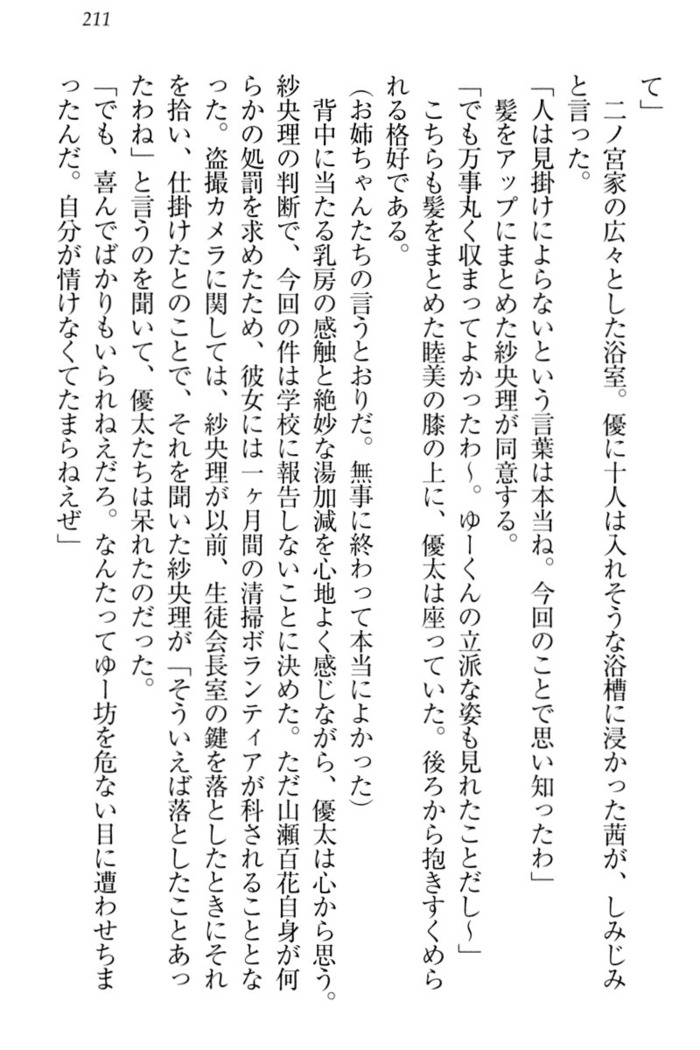 211
て」
　二ノ宮家の広々とした浴室。優に十人は入れそうな浴槽に浸かった茜が、しみじみ
と言った。
「人は見掛けによらないという言葉は本当ね。今回のことで思い知ったわ」
　髪をアップにまとめた紗央理が同意する。
「でも万事丸く収まってよかったわ～。ゆーくんの立派な姿も見れたことだし～」
　こちらも髪をまとめた睦美の膝の上に、優太は座っていた。後ろから抱きすくめら
れる格好である。
（お姉ちゃんたちの言うとおりだ。無事に終わって本当によかった）
　背中に当たる乳房の感触と絶妙な湯加減を心地よく感じながら、優太は心から思う。
紗央理の判断で、今回の件は学校に報告しないことに決めた。ただ山瀬百花自身が何
らかの処罰を求めたため、彼女には一ヶ月間の清掃ボランティアが科されることとな
った。盗撮カメラに関しては、紗央理が以前、生徒会長室の鍵を落としたときにそれ
を拾い、仕掛けたとのことで、それを聞いた紗央理が「そういえば落としたことあっ
たわね」と言うのを聞いて、優太たちは呆れたのだった。
「でも、喜んでばかりもいられねえだろ。なんたってゆー坊を危ない目に遭わせちま
ったんだ。自分が情けなくてたまらねえぜ」